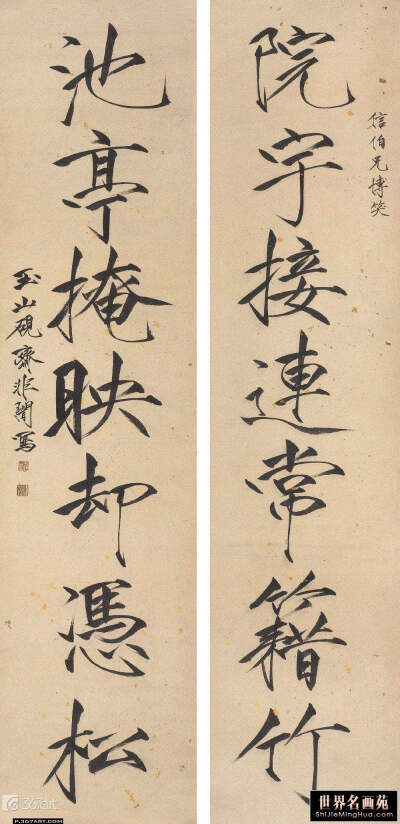 信伯兄博笑
院宇接連常籍竹
池亭掩映却憑松
玉山硯齋非闇寫
世界名画苑
ShiJieMingHua.Com